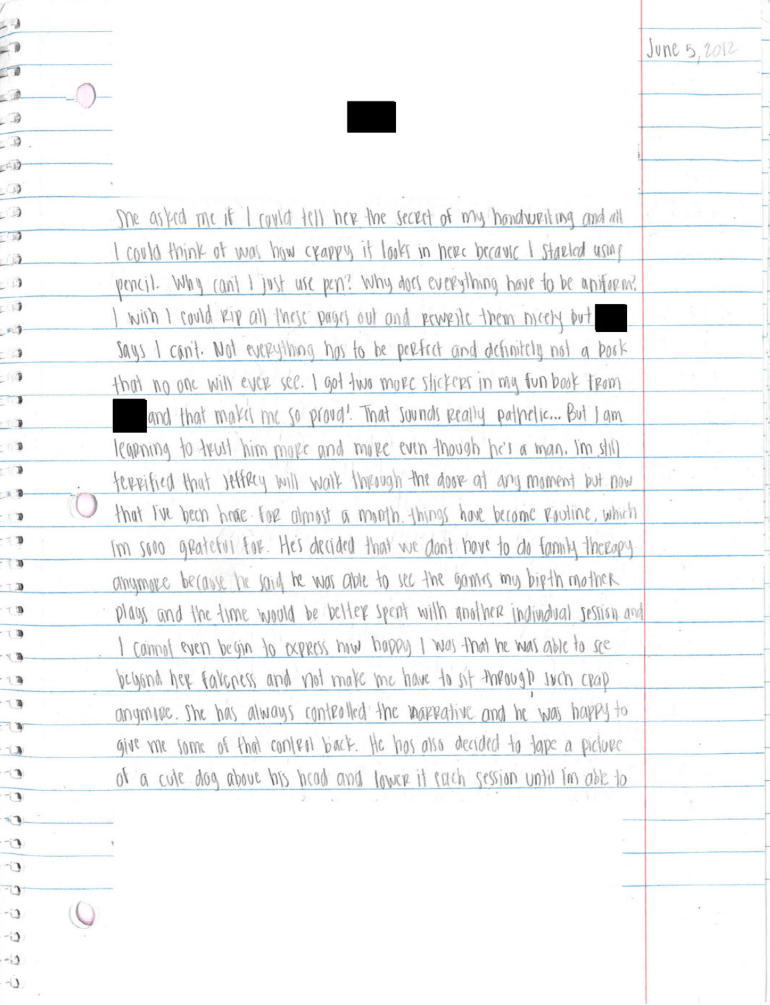 June 5, 2012
She asked me if I could tell her the secret of my handwriting and all
I could think of was how crappy it looks in here because I started using
pencil. Why can't I just use pen? Why does everything have to be uniform?
I wish I could rip all these pages out and rewrite them nicely but
says I can't. Not everything has to be perfect and definitely not a book
that no one will ever see. I got two more stickers in my fun book from
and that makes me so proud! That sounds really pathetic... But I am
learning to trust him more and more even though he's a man. I'm still
terrified that Jeffrey will walk through the door at any moment but now
that I've been here for almost a month, things have become routine, which
I'm sooo grateful for. He's decided that we dont have to do family therapy
anymore because he said he was able to see the games my birth mother
plays and the time would be better spent with another individual session and
I cannot even begin to express how happy I was that he was able to see
beyond her fakeness and not make me have to sit through such crap
anymore. She has always controlled the narrative and he was happy to
give me some of that control back. He has also decided to tape a picture
of a cute dog above his head and lower it each session until I'm able to